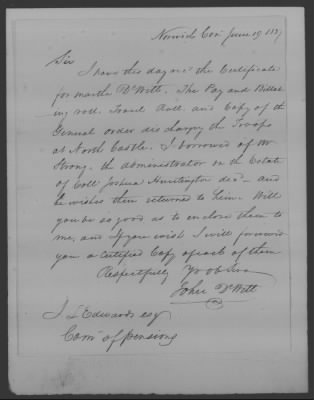 Norwich Con June 19 1837
Sir
I have this day recd the Certificate
for martha DeWitt. The Pay and Billet
ing roll, Travel Roll and Copy of the
General order discharging the Troops
at North Castle. I borrowed of Mr
Strong, the administrator on the Estate
of Coll Joshua Huntington decd — and
he wishes them returned to him. Will
you be so good as to enclose them to
me, and if you wish I will forward
you a Certified Copy of each of them
Respectfully Yr ob Serv
John DeWitt
J L Edwards esq
Comr of pensions